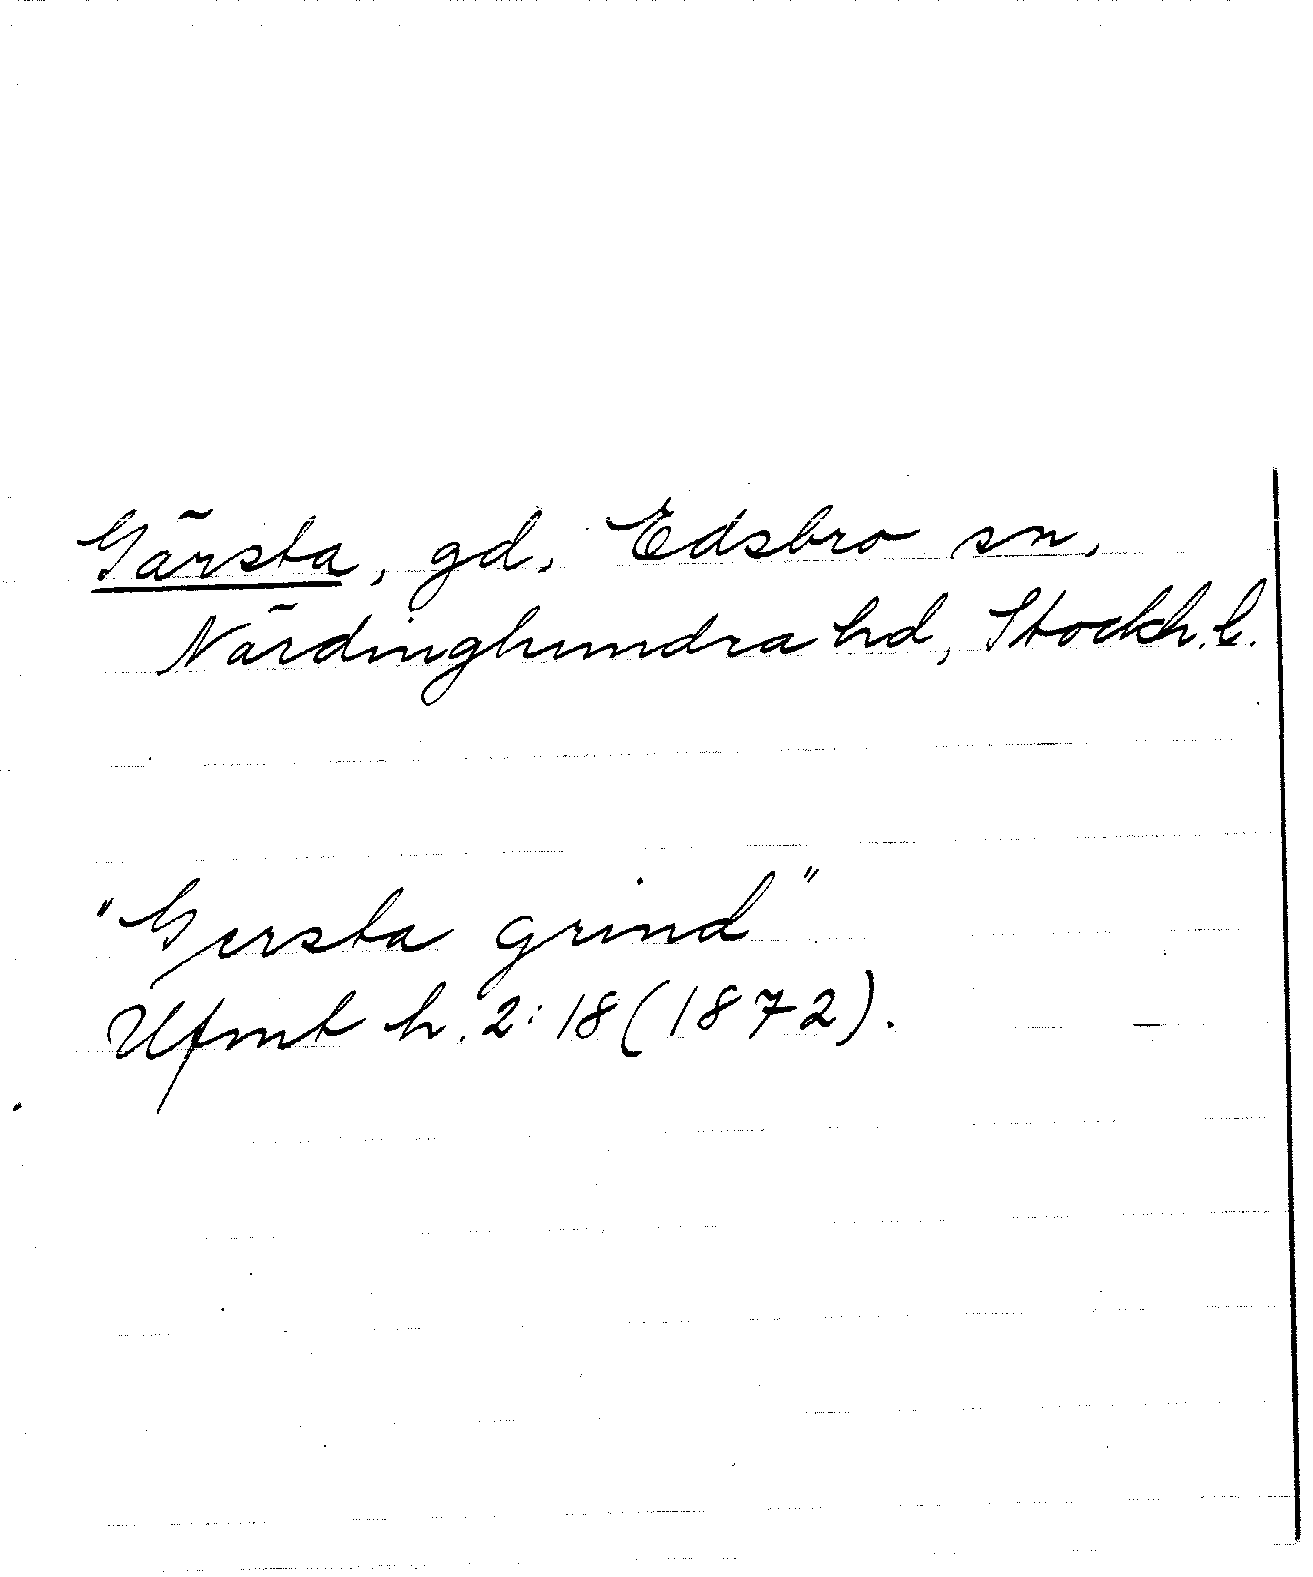 Gärsta, gd, Edsbro sn,
Närdinghundra hd, Stockh. l.
"Gersta grind"
Ufmt h. 2:18 (1872).